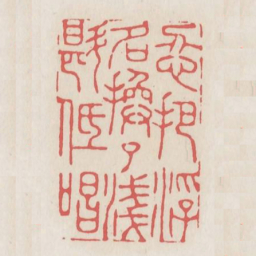 忍把浮
名換了浅
斟低唱